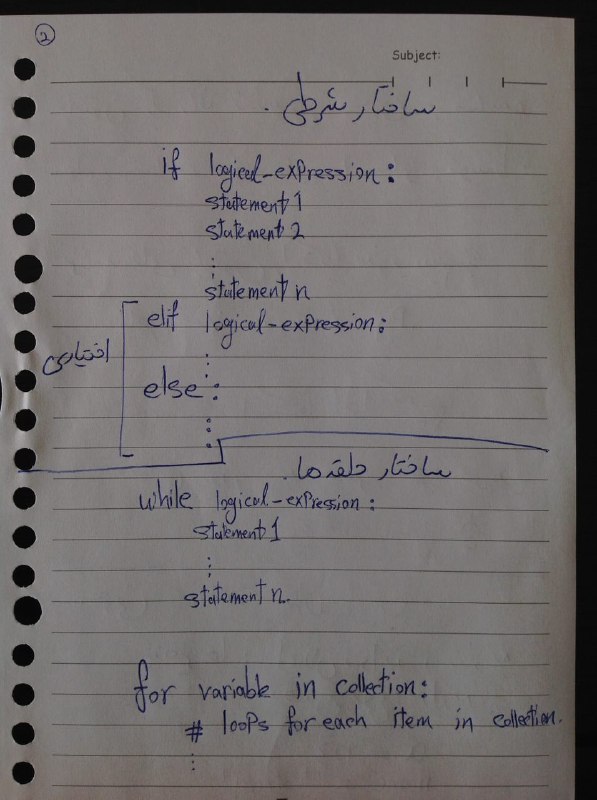 2
Subject:
ساختار شرطی.
if logical-expression:
statement 1
statement 2
⋮
statement n
elif logical-expression:
⋮
اختیاری
else:
⋮
ساختار حلقه ها.
while logical-expression:
statement 1
⋮
statement n.
for variable in collection:
# loops for each item in collection.
⋮